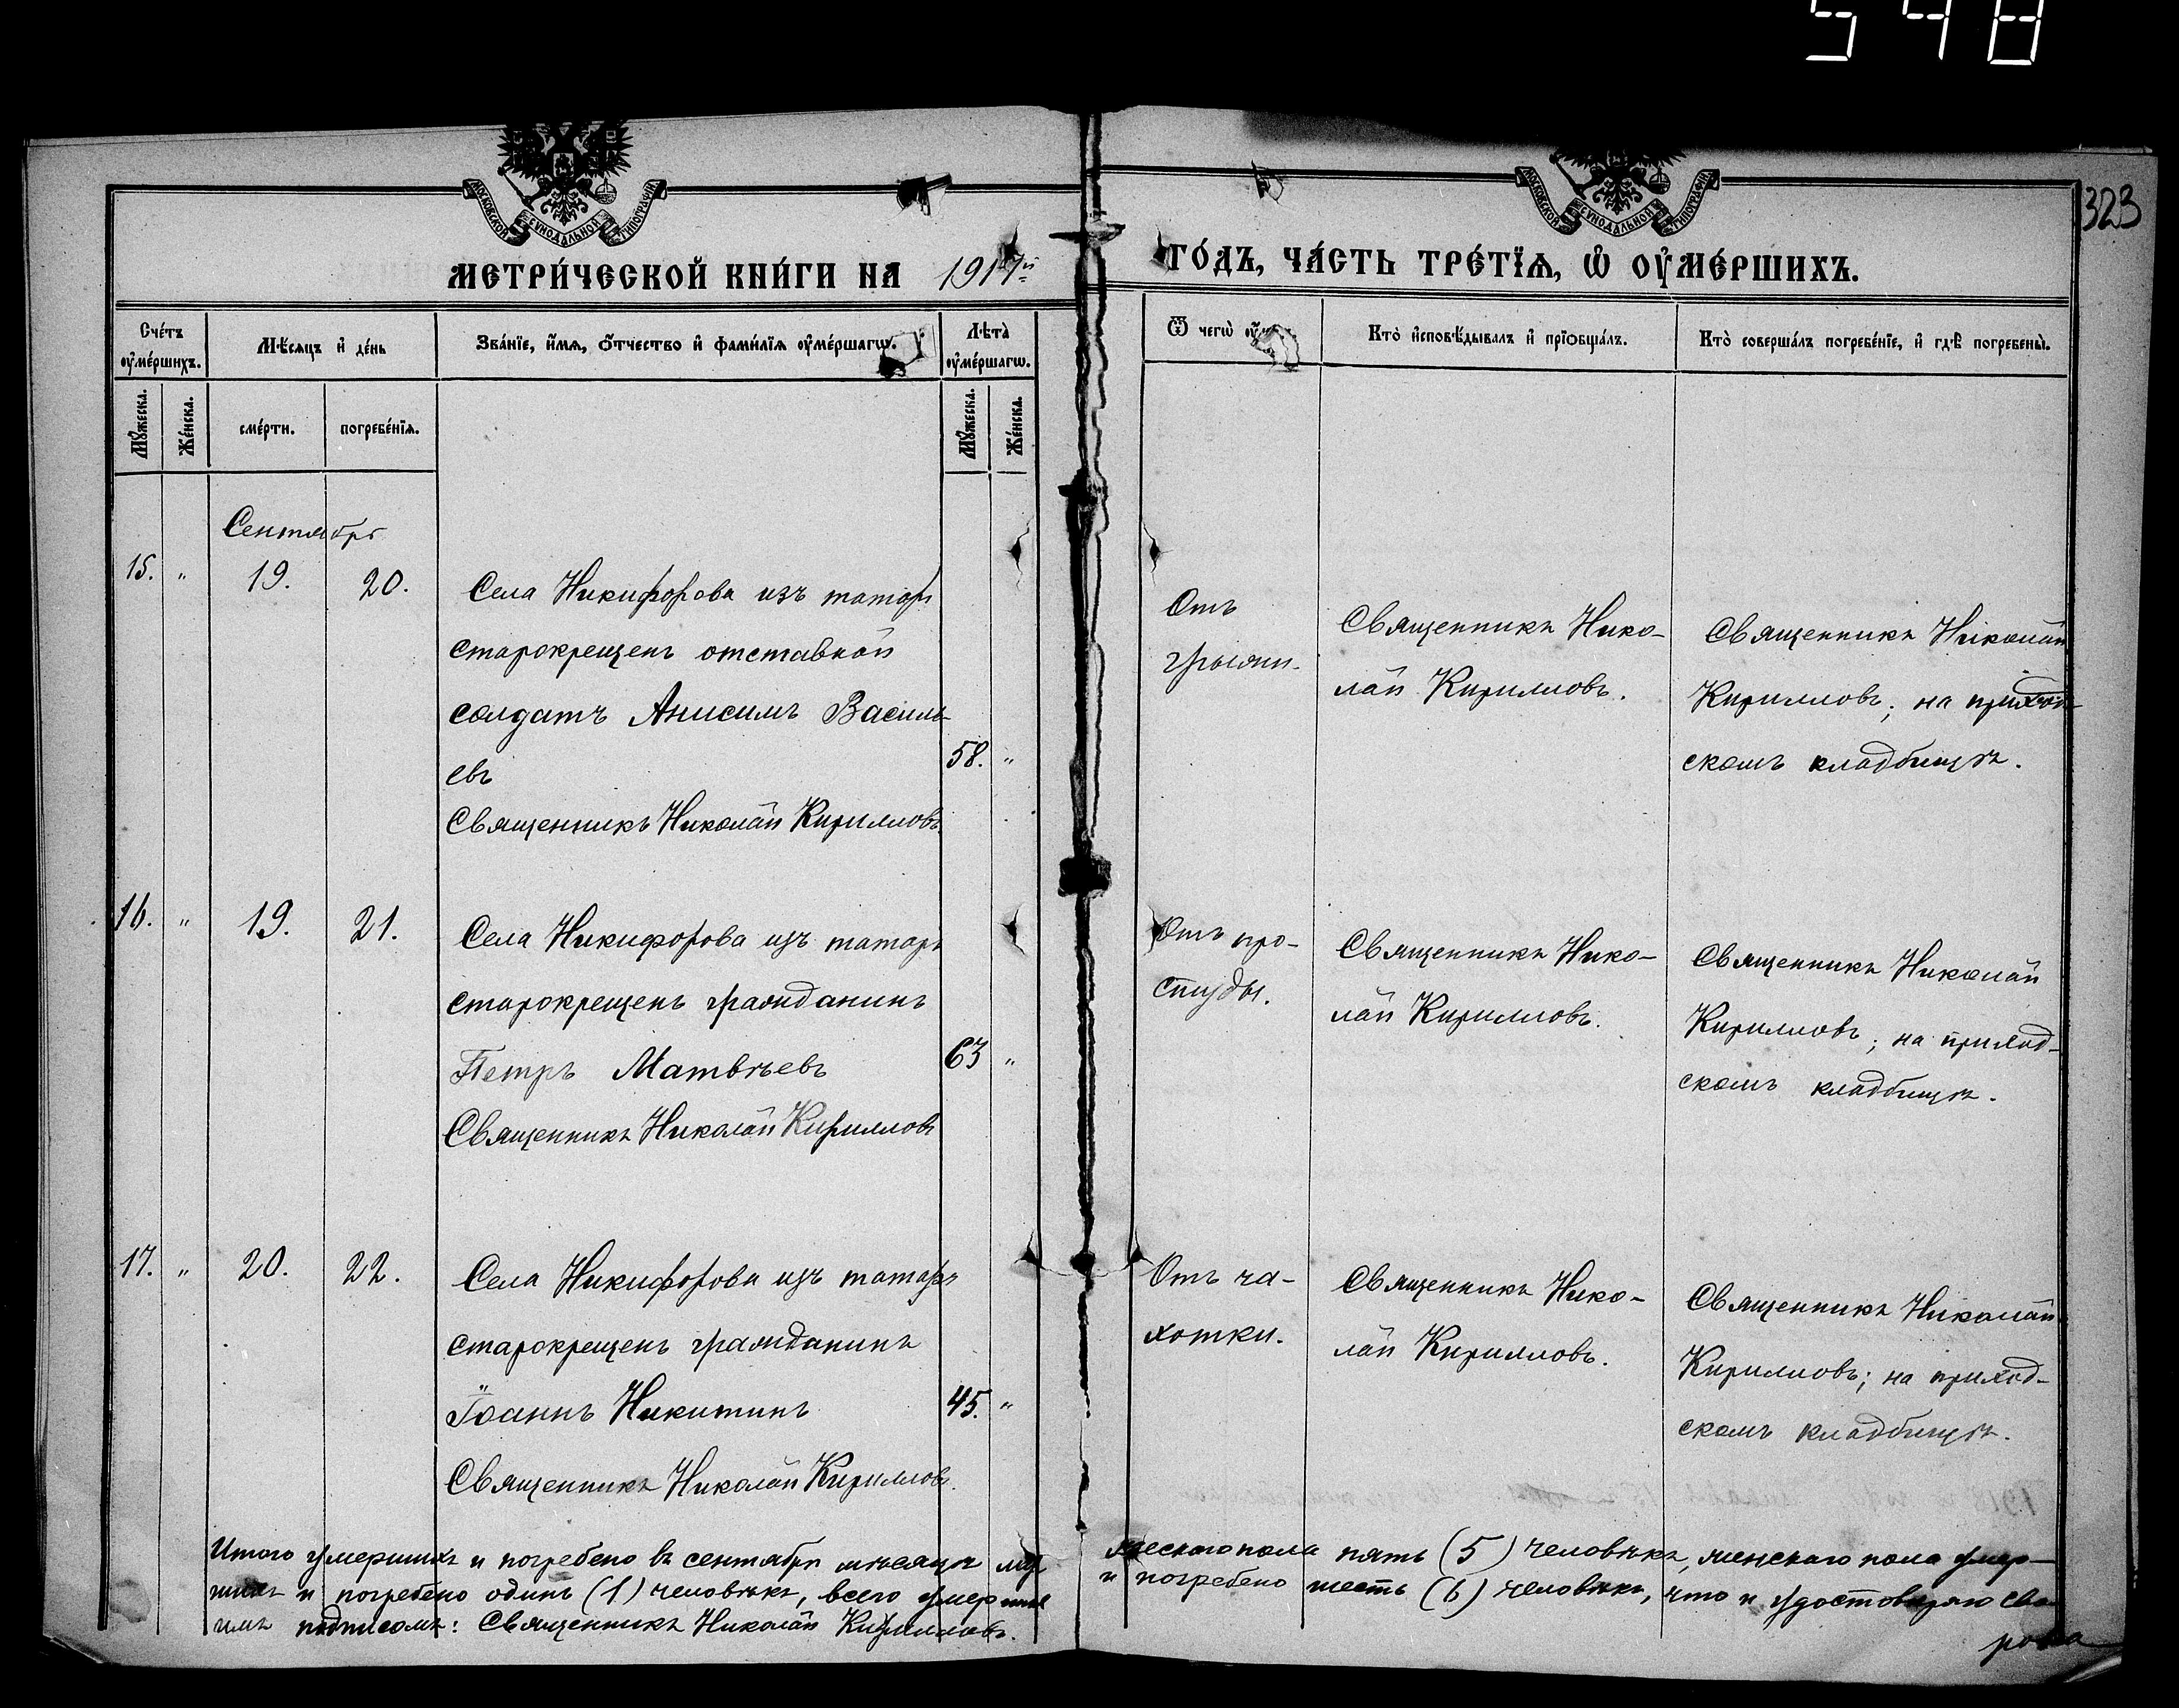 548
323
МОСКОВСКОЙ СѴНОДАЛЬНОЙ ТИПОГРАФІИ
МОСКОВСКОЙ СѴНОДАЛЬНОЙ ТИПОГРАФІИ
МЕТРИ́ЧЕСКОЙ КНИ́ГИ НА 1917й ГО́ДЪ, ЧА́СТЬ ТРЕ́ТЇѦ, Ѡ҆ ОУ҆МЕ́РШИХЪ.
Сче́тъ оу҆ме́ршихъ.
Мѣ́сяцъ и҆ де́нь
Зва́нїе, и҆́мѧ, ѻ҆́тчество и҆ фами́лїѧ оу҆ме́ршагѡ.
Лѣ́та̀ оу҆ме́ршагѡ.
Ѿ чегѡ̀
Кто̀ и҆сповѣ́дывалъ и҆ прїѡбща́лъ.
Кто̀ соверша́лъ погребе́нїе, и҆ гдѣ̀ погребены̀.
Мꙋ́жеска.
Же́нска.
сме́рти.
погребе́нїѧ.
Мꙋ́жеска.
Же́нска.
Сентябрь
15. " 19. 20.
Села Никифорова изъ татаръ
старокрещенъ отставной
солдатъ Анисимъ Василь-
евъ
58. "
Священникъ Николай Кирилловъ
Отъ
грыжи.
Священникъ Нико-
лай Кирилловъ.
Священникъ Николай
Кирилловъ; на приход-
скомъ кладбищѣ.
16. " 19. 21.
Села Никифорова изъ татаръ
старокрещенъ гражданинъ
Петръ Матвѣевъ
63 "
Священникъ Николай Кирилловъ
Отъ про-
студы.
Священникъ Нико-
лай Кирилловъ.
Священникъ Николай
Кирилловъ; на приход-
скомъ кладбищѣ.
17. " 20. 22.
Села Никифорова изъ татаръ
старокрещенъ гражданинъ
Іоаннъ Никитинъ
45. "
Священникъ Николай Кирилловъ.
Отъ ча-
хотки.
Священникъ Нико-
лай Кирилловъ.
Священникъ Николай
Кирилловъ; на приход-
скомъ кладбищѣ.
Итого умершихъ и погребено въ сентябрѣ мѣсяцѣ муж
жескаго пола пять (5) человѣкъ, женскаго пола умер-
шихъ и погребено одинъ (1) человѣкъ, всего умершихъ
и погребено шесть (6) человѣкъ, что и удостовѣряю сво
имъ подписомъ: Священникъ Николай Кирилловъ.